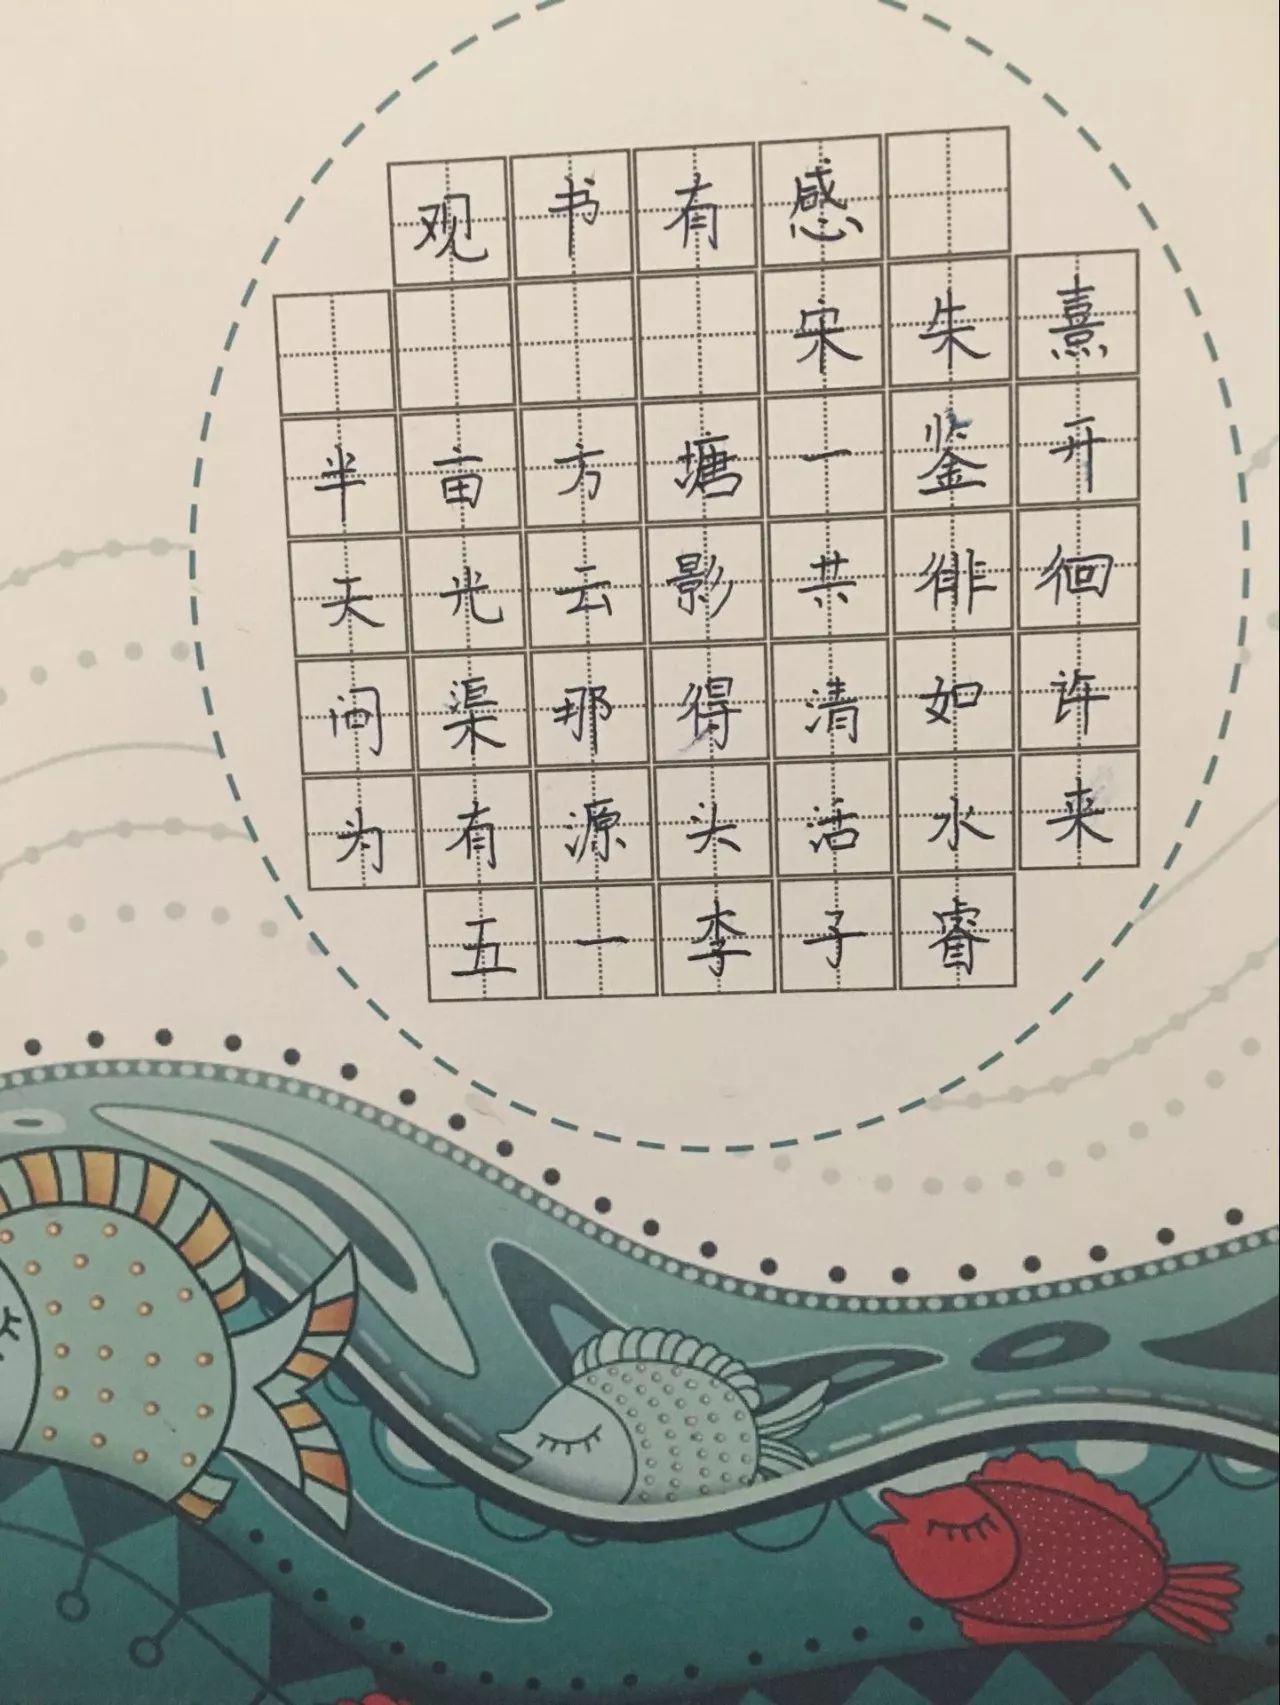 观书有感
宋朱熹
半亩方塘一鉴开
天光云影共徘徊
问渠那得清如许
为有源头活水来
五一李子睿